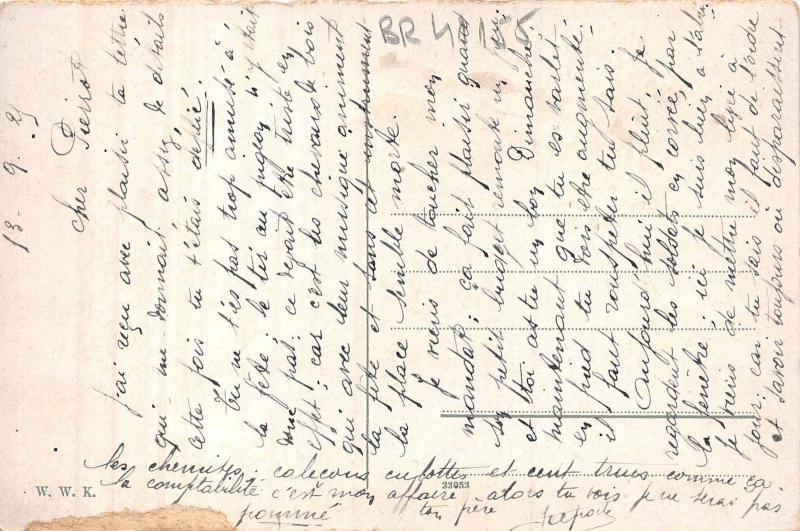 13-9-25
Cher Pierrot
j'ai reçu avec plaisir ta lettre
qui me donnait assez de détails
cette fois tu t'étais déplié.
Tu ne t'es pas trop amusé à
la fête; le tir au pigeon n'y était
donc pas; ce devait être triste en
effet; car c'est les chevaux de bois
qui avec leur musique animent
la fête et sans cet instrument
la place semble morte.
je viens de toucher mon
mandat; ça fait plaisir quand
le petit budget remonte un peu
et toi as tu un bon Dimanche
maintenant que tu es
en pied tu dois être augmenté.
il faut rouspéter tu sais.
Aujourd'hui il pleut, je
regardent les soldats en corvée, par
la fenêtre; ici je suis bien à l'abri
je viens de mettre mon linge à
jour; car tu sais il faut de l'ordre
et savoir toujours où disparaissent
les chemises; caleçons culottes et cent trucs comme ça
la comptabilité c'est mon affaire, alors tu vois je ne serai pas
paumé ton père
W. W. K.
33053